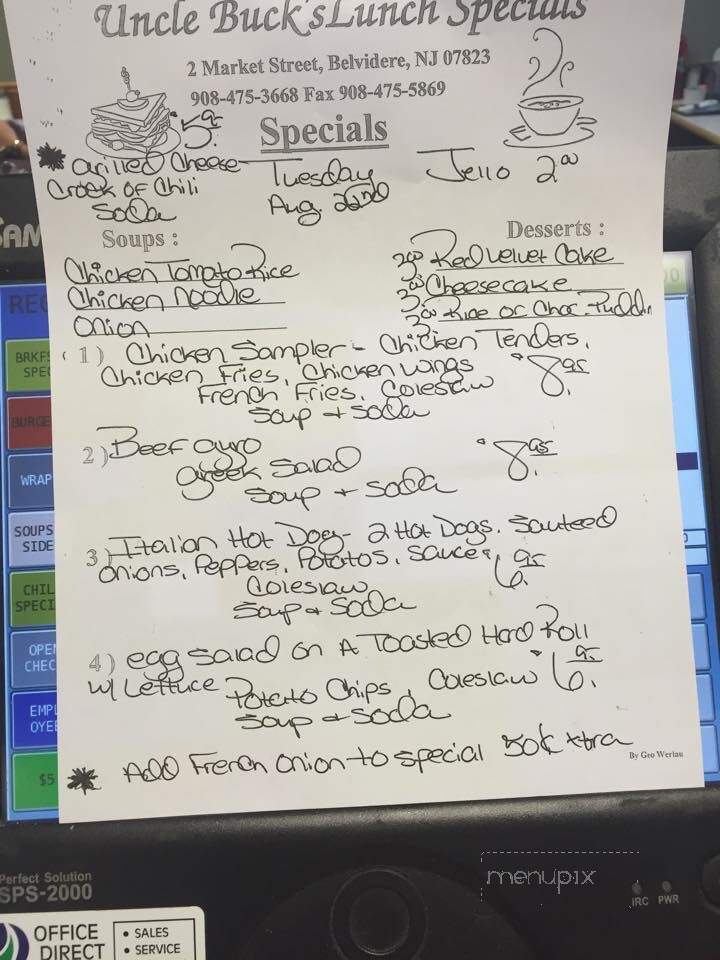 Uncle Buck'sLunch Specials
2 Market Street, Belvidere, NJ 07823
908-475-3668 Fax 908-475-5869
Specials
5.95
Grilled Cheese
Crock OF Chili
Soda
Tuesday
Aug. 22nd
Jello 2.00
Soups :
Chicken Tomato Rice
Chicken Noodle
Onion
Desserts :
Red Velvet Cake
Cheesecake
Rice or Choc. Puddin
1) Chicken Sampler - Chicken Tenders,
Chicken Fries, Chicken Wings 8.95
French Fries, Coleslaw
Soup + Soda
2) Beef Gyro 8.95
Greek Salad
Soup + Soda
3) Italian Hot Dog - 2 Hot Dogs. Sauteed
Onions, Peppers, Potatos, Sauce 6.95
Coleslaw
Soup + Soda
4) egg Salad on A Toasted Hard Roll
w/ Lettuce Potato Chips, Coleslaw 6.95
Soup + Soda
Add French Onion to special 50¢ xtra
By Geo Werlau
SAM
REG
BRKFS
SPE
BURGE
WRAP
SOUPS
SIDE
CHIL
SPECI
OPE
CHEC
EMPL
OYEE
$5
Perfect Solution
SPS-2000
menupix
IRC PWR
OFFICE
DIRECT
• SALES
• SERVICE